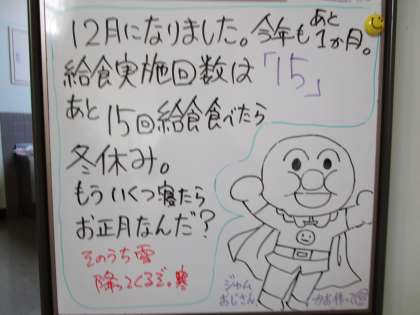 12月になりました。今年もあと1か月。
給食実施回数は「15」
あと15回給食食べたら
冬休み。
もういくつ寝たら
お正月なんだ?
そのうち雪
降ってくるぞ。
ジャム
おじさん、
かお作って